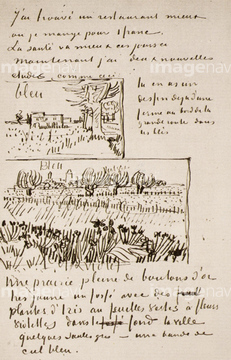 J'ai trouvé un restaurant mieux
où je mange pour 1 franc.
La santé va mieux ces jours ci
Maintenant j'ai deux nouvelles
études comme ceci
bleu
tu en as un
dessin déjà d'une
ferme au bord de la
grande route dans
les blés.
Bleu
Une prairie pleine de boutons d'or
très jaune un fossé avec des
plantes d'Iris aux feuilles vertes à fleurs
violettes dans le fond la ville
quelques saules gris – une bande de
ciel bleu.
imagenavi